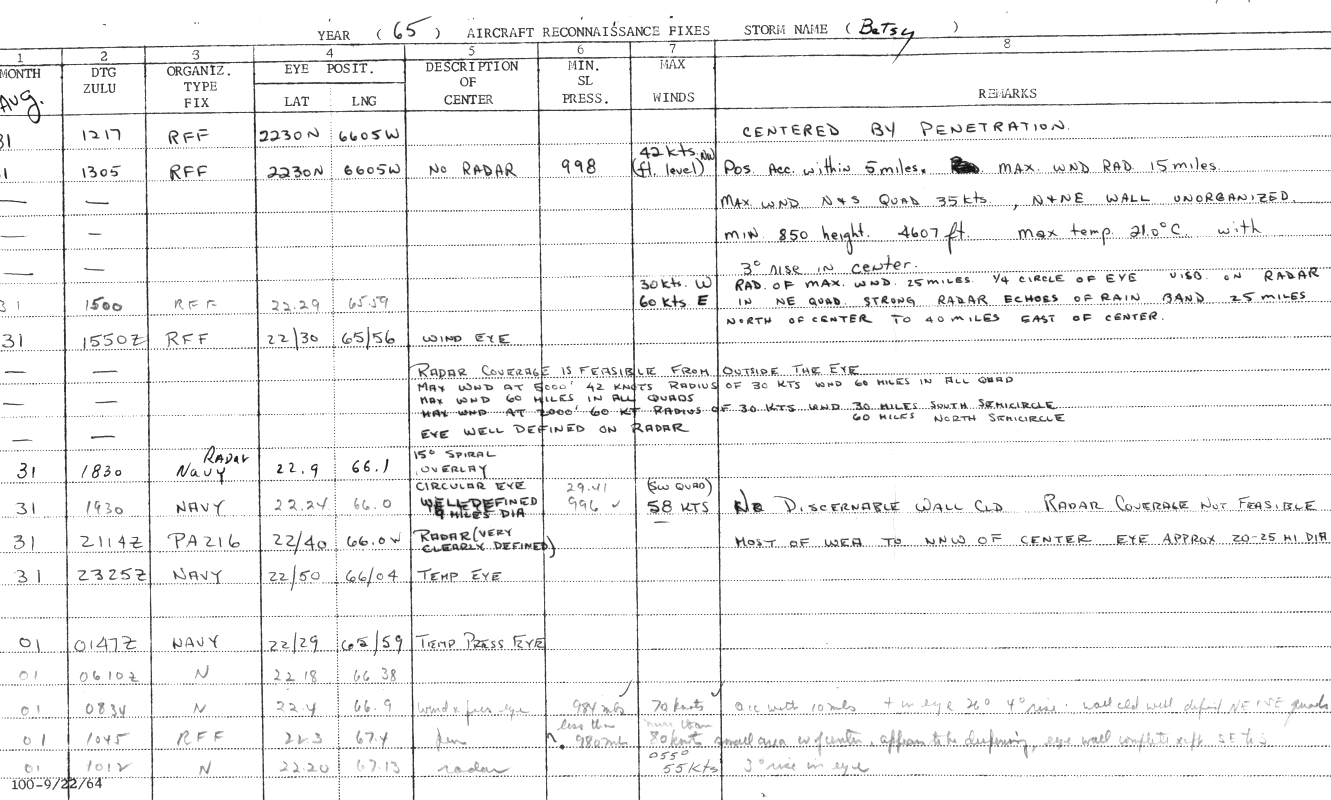 YEAR ( 65 ) AIRCRAFT RECONNAISSANCE FIXES STORM NAME ( Betsy )
1 2 3 4 5 6 7 8
MONTH DTG ZULU ORGANIZ. TYPE FIX EYE POSIT. LAT LNG DESCRIPTION OF CENTER MIN. SL PRESS. MAX WINDS REMARKS
Aug.
31 1217 RFF 2230N 6605W CENTERED BY PENETRATION.
1305 RFF 2230N 6605W NO RADAR 998 42 kts. NW (fl. level) Pos. Acc. within 5 miles. MAX WND RAD 15 miles.
— — MAX WND N+S QUAD 35 kts., N+NE WALL UNORGANIZED.
— — MIN. 850 height. 4607 ft. max temp. 21.0°C with
— — 3° rise in center.
31 1500 RFF 22.29 6559 30 kts. W 60 kts. E RAD. OF MAX. WND. 25 miles. 1/4 CIRCLE OF EYE VISB. ON RADAR
IN NE QUAD. STRONG RADAR ECHOES OF RAIN BAND 25 MILES
NORTH OF CENTER TO 40 MILES EAST OF CENTER.
31 1550Z RFF 22/30 65/56 WIND EYE
— — RADAR COVERAGE IS FEASIBLE FROM OUTSIDE THE EYE
MAX WND AT 5000' 42 KNOTS RADIUS OF 30 KTS WND 60 MILES IN ALL QUAD
— — MAX WND 60 MILES IN ALL QUADS
MAX WND AT 2000' 60 KT RADIUS OF 30 KTS WND 30 MILES SOUTH SEMICIRCLE
60 MILES NORTH SEMICIRCLE
— — EYE WELL DEFINED ON RADAR
31 1830 Navy Radar 22.9 66.1 15° SPIRAL OVERLAY
31 1930 NAVY 22.24 66.0 CIRCULAR EYE WELL-DEFINED 9 MILES DIA 29.41 996 ✓ (SW QUAD) 58 KTS No DISCERNABLE WALL CLD RADAR COVERAGE NOT FEASIBLE
31 2114Z PA216 22/40 66.0W RADAR (VERY CLEARLY DEFINED) MOST OF WEA TO NNW OF CENTER EYE APPROX 20-25 MI DIA
31 2325Z NAVY 22/50 66/04 TEMP EYE
01 0147Z NAVY 22/29 65/59 TEMP PRESS EYE
01 0610Z N 22 18 66 38
01 0834 N 22.4 66.9 wind x eye 984 mbs 70 knots ✓ acc with 10 mls in eye 26° 4° rise. wall cld well defined NE SE quads
01 1045 RFF 223 67.4 less than 980 mb more than 80 knots small area of center, appears to be deepening, eye wall complete
01 1012 N 22.20 67.13 radar 055° 55 kts 3° rise in eye
100-9/22/64